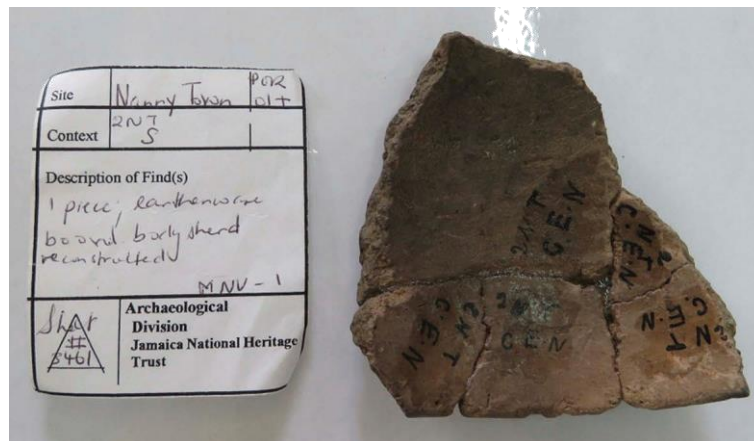 Site
Nanny Town
POR
01+
Context
2NT
S
Description of Find(s)
1 piece; earthenware
body sherd
reconstructed
MNV-1
#
5461
Archaeological
Division
Jamaica National Heritage
Trust
2NT
C.E.N
2NT
C.E.N
2NT
C.E.N
2NT
CEN
2N
C.E.N